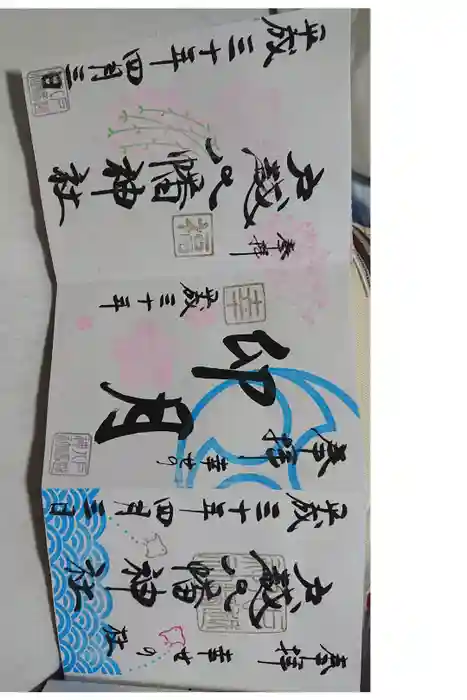 奉拝
戸越八幡神社
平成三十年四月三日
奉拝
幸せの
卯月
幸
平成三十年
奉拝
幸せの
戸越八幡神社
平成三十年四月三日